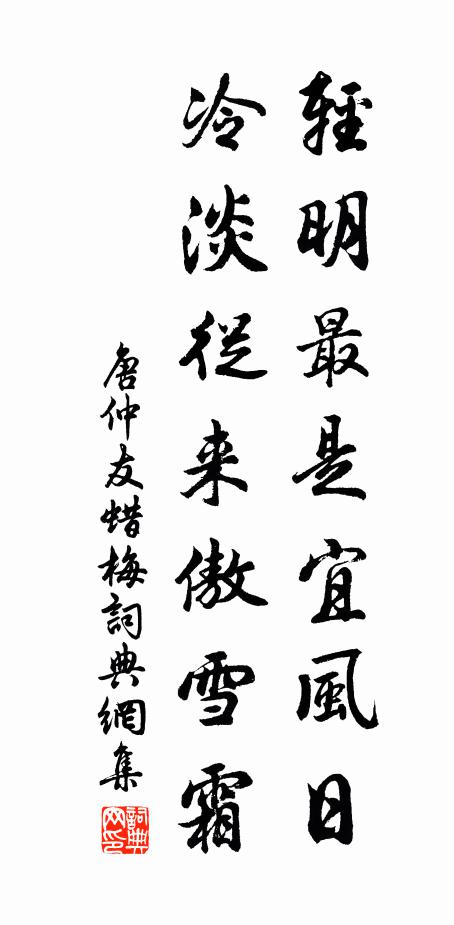 輕明最是宜風日
冷淡從来傲雪霜
唐仲友蜡梅詞典網集
詞典
网印